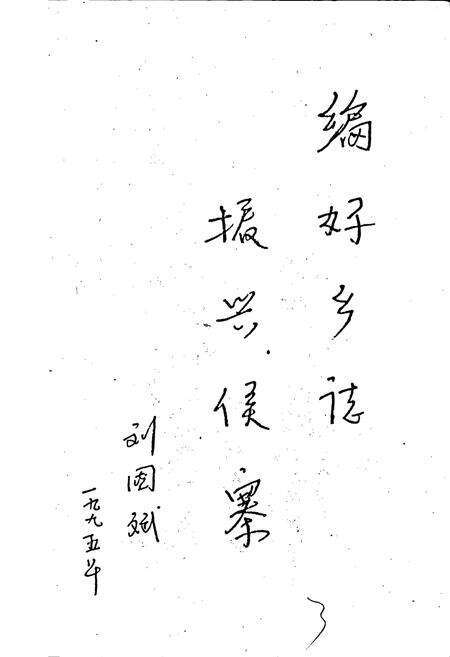 编好乡誌
振兴侯寨
刘国斌
一九九五年
3